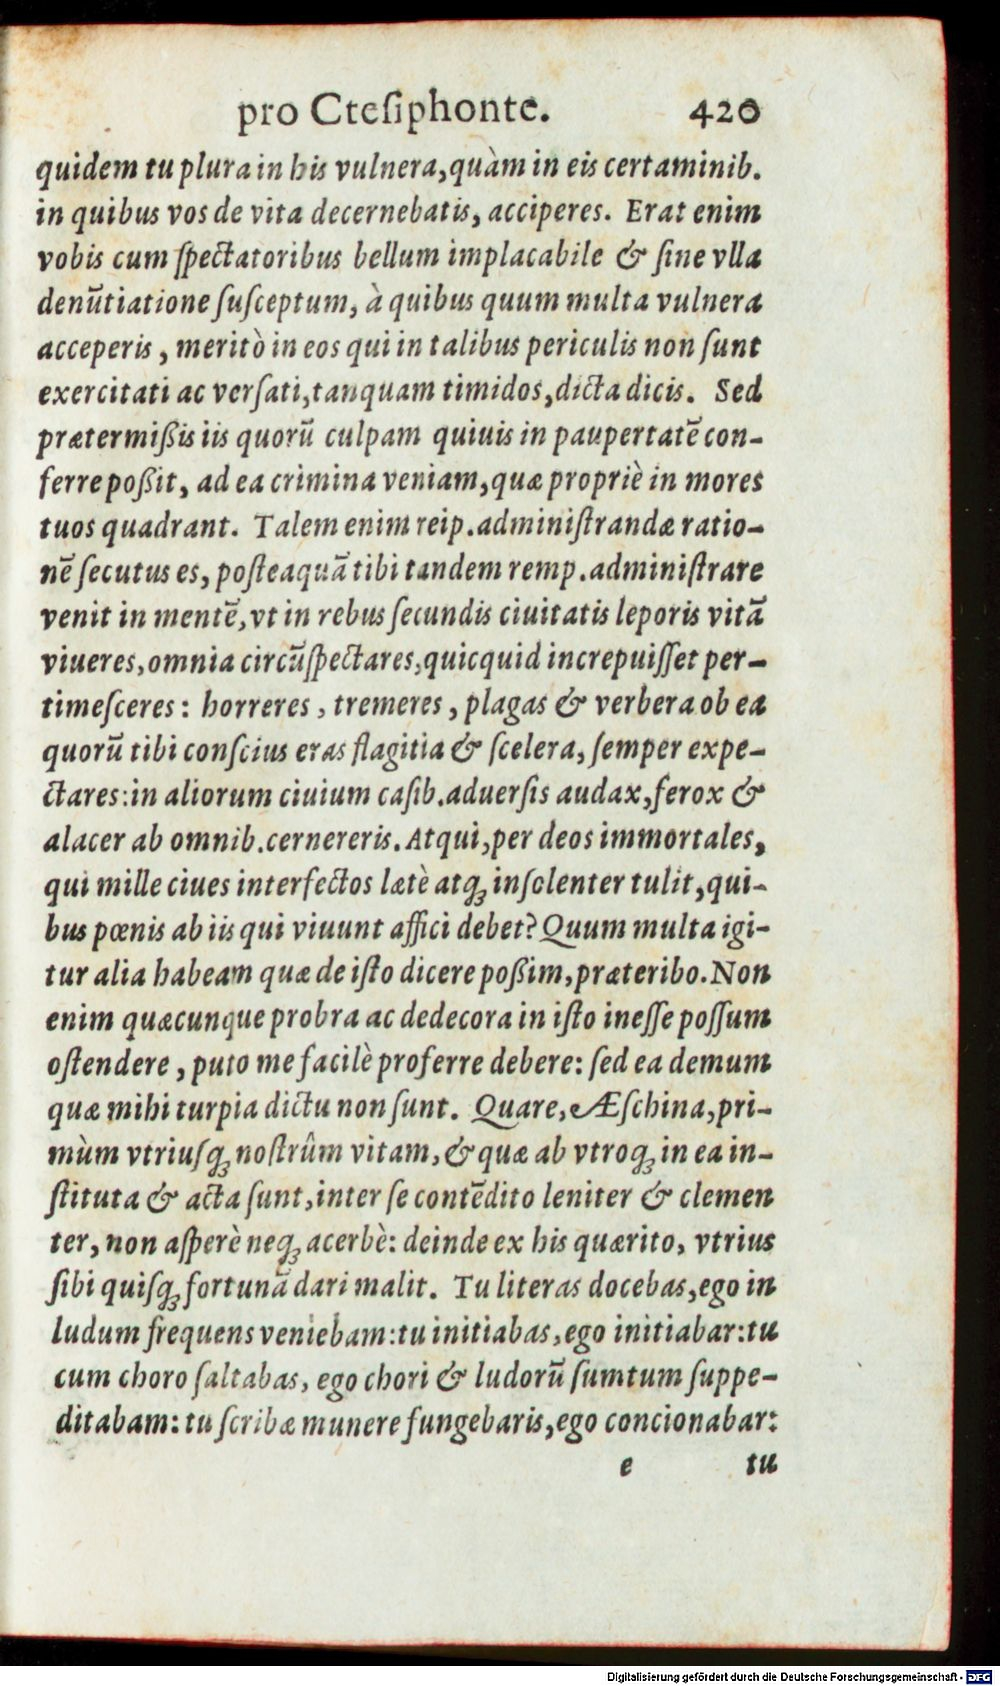 pro Cteſiphonte. 420
quidem tu plura in his vulnera, quàm in eis certaminib.
in quibus vos de vita decernebatis, acciperes. Erat enim
vobis cum ſpectatoribus bellum implacabile & ſine vlla
denũtiatione ſuſceptum, à quibus quum multa vulnera
acceperis, meritò in eos qui in talibus periculis non ſunt
exercitati ac verſati, tanquam timidos, dicta dicis. Sed
prætermißis iis quorũ culpam quiuis in paupertatẽ con-
ferre poßit, ad ea crimina veniam, quæ propriè in mores
tuos quadrant. Talem enim reip. adminiſtrandæ ratio-
nẽ ſecutus es, poſteaquã tibi tandem remp. adminiſtrare
venit in mentẽ, vt in rebus ſecundis ciuitatis leporis vitã
viueres, omnia circũſpectares, quicquid increpuiſſet per-
timeſceres: horreres, tremeres, plagas & verbera ob ea
quorũ tibi conſcius eras flagitia & ſcelera, ſemper expe-
ctares: in aliorum ciuium caſib. aduerſis audax, ferox &
alacer ab omnib. cernereris. Atqui, per deos immortales,
qui mille ciues interfectos lætè atq; inſolenter tulit, qui-
bus pœnis ab iis qui viuunt affici debet? Quum multa igi-
tur alia habeam quæ de iſto dicere poßim, præteribo. Non
enim quæcunque probra ac dedecora in iſto ineſſe poſſum
oſtendere, puto me facilè proferre debere: ſed ea demum
quæ mihi turpia dictu non ſunt. Quare, Æſchina, pri-
mùm vtriuſq; noſtrûm vitam, & quæ ab vtroq; in ea in-
ſtituta & acta ſunt, inter ſe contẽdito leniter & clemen
ter, non aſperè neq; acerbè: deinde ex his quærito, vtrius
ſibi quiſq; fortunã dari malit. Tu literas docebas, ego in
ludum frequens veniebam: tu initiabas, ego initiabar: tu
cum choro ſaltabas, ego chori & ludorũ ſumtum ſuppe-
ditabam: tu ſcribæ munere fungebaris, ego concionabar:
e tu
Digitalisierung gefördert durch die Deutsche Forschungsgemeinschaft - DFG